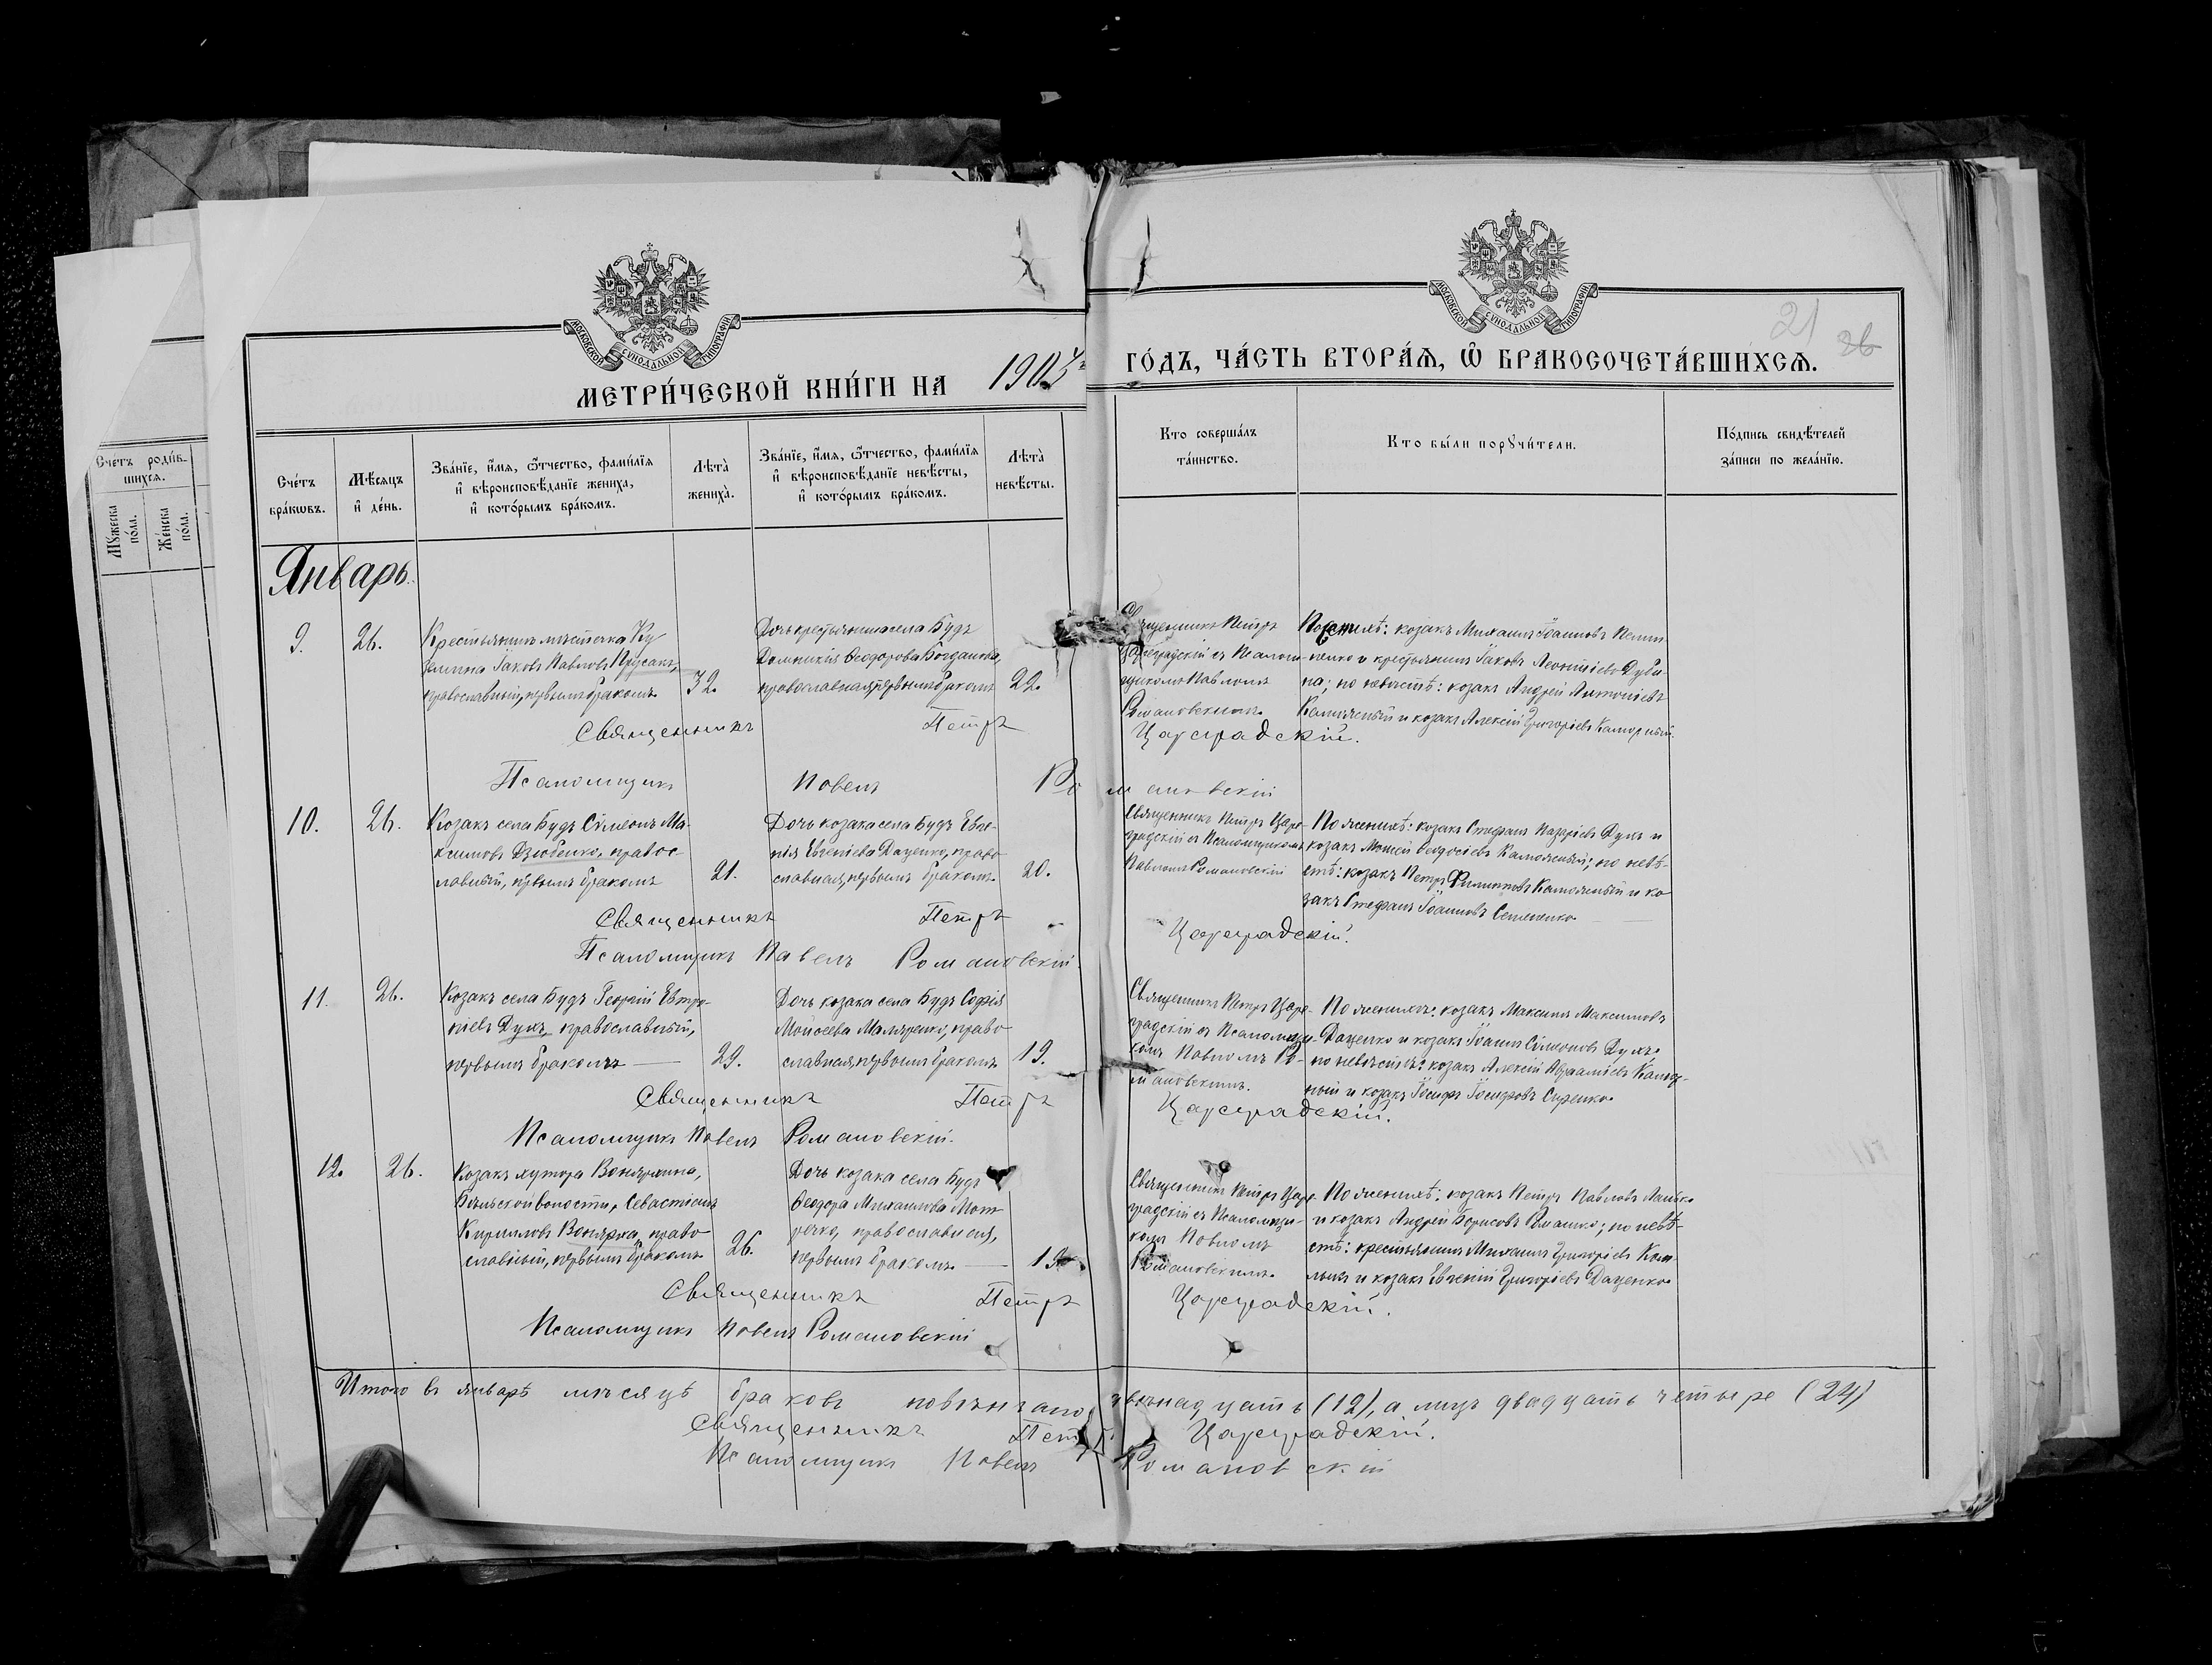 МОСКОВСКОЙ СѴНОДАЛЬНОЙ ТИПОГРАФІИ
МОСКОВСКОЙ СѴНОДАЛЬНОЙ ТИПОГРАФІИ
21
МЕТРИ́ЧЕСКОЙ КНИ́ГИ НА 190
ГО́ДЪ, ЧА́СТЬ ВТОРА́Ѧ, Ѽ БРАКОСОЧЕТА́ВШИХСѦ.
Сче́тъ роди́в-
шихсѧ.
Мꙋ́жеска
по́ла.
Же́нска
по́ла.
Сче́тъ
бра́кѡвъ.
Мѣ́сѧцъ
и҆ де́нь.
Зва́нїе, и҆́мѧ, ѻ҆́тчество, фами́лїѧ
и҆ вѣроисповѣ́данїе жениха̀,
и҆ кото́рымъ бра́комъ.
Лѣ́та
жениха̀.
Зва́нїе, и҆́мѧ, ѻ҆́тчество, фами́лїѧ
и҆ вѣроисповѣ́данїе невѣ́сты,
и҆ кото́рымъ бра́комъ.
Лѣ́та
невѣ́сты.
Кто соверша́лъ
та́инство.
Кто бы́ли порꙋчи́тели.
По́дпись свидѣ́телей
за́писи по жела́нїю.
Январь.
9.
26.
Крестьянинъ мѣстечка Ку
земина Іаковъ Павловъ Прусакъ,
православный, первымъ бракомъ.
32.
Дочь крестьянина села Будъ
Домникія Ѳеодорова Богданова,
православная, первымъ бракомъ
22.
Священникъ Петръ
Цареградскій съ Псалом-
щикомъ Павломъ
Романовскимъ.
По женихѣ: козакъ Михаилъ Іоанновъ
и крестьянинъ Іаковъ Леонтіевъ Дуби-
на; по невѣстѣ: козакъ Андрей Антоніевъ
и козакъ Алексій Григоріевъ
Священникъ Петръ Цареградскій.
Псаломщикъ Павелъ Романовскій
10.
26.
Козакъ села Будъ Сѵмеонъ Ма-
ксимовъ Дзюбенко, правос-
лавный, первымъ бракомъ
21.
Дочь козака села Будъ Евге-
нія Евгеніева Даценко, право
славная, первымъ бракомъ.
20.
Священникъ Петръ Царе-
градскій съ Псаломщикомъ
Павломъ Романовскій
По женихѣ: козакъ Стефанъ Назаріевъ Духъ и
козакъ Моисей Ѳеодосіевъ; по невѣ-
стѣ: козакъ Петръ Филипповъ и ко
закъ Стефанъ Іоанновъ Семененко
Священникъ Петръ Цареградскій.
Псаломщикъ Павелъ Романовскій
11.
26.
Козакъ села Будъ Георгій Евтро-
піевъ Духъ, православный,
первымъ бракомъ
29.
Дочь козака села Будъ Софія
Моисеева Маляренко, право
славная, первымъ бракомъ
19.
Священникъ Петръ Царе-
градскій съ Псаломщи-
комъ Павломъ Ро-
мановскимъ.
По женихѣ: козакъ Максимъ Максимовъ
Даценко и козакъ Іоаннъ Сѵмеоновъ Духъ;
по невѣстѣ: козакъ Алексій Авраміевъ
и козакъ Іосифъ Іосифовъ Сиренко.
Священникъ Петръ Цареградскій.
Псаломщикъ Павелъ Романовскій.
12.
26.
Козакъ хутора
волости, Севастіанъ
Кирилловъ право
славный, первымъ бракомъ
26.
Дочь козака села Будъ
Ѳеодора Михаилова
православная,
первымъ бракомъ.
Священникъ Петръ Царе-
градскій съ Псаломщи-
комъ Павломъ
Романовскимъ.
По женихѣ: козакъ Петръ Павловъ
и козакъ Андрей Борисовъ; по невѣ-
стѣ: крестьянинъ Михаилъ Григоріевъ
и козакъ Евгеній Григоріевъ Даценко
Священникъ Петръ Цареградскій.
Псаломщикъ Павелъ Романовскій
Итого въ январѣ мѣсяцѣ браковъ повѣнчано двѣнадцать (12), а лицъ двадцать четыре (24)
Священникъ Петръ Цареградскій.
Псаломщикъ Павелъ Романовскій